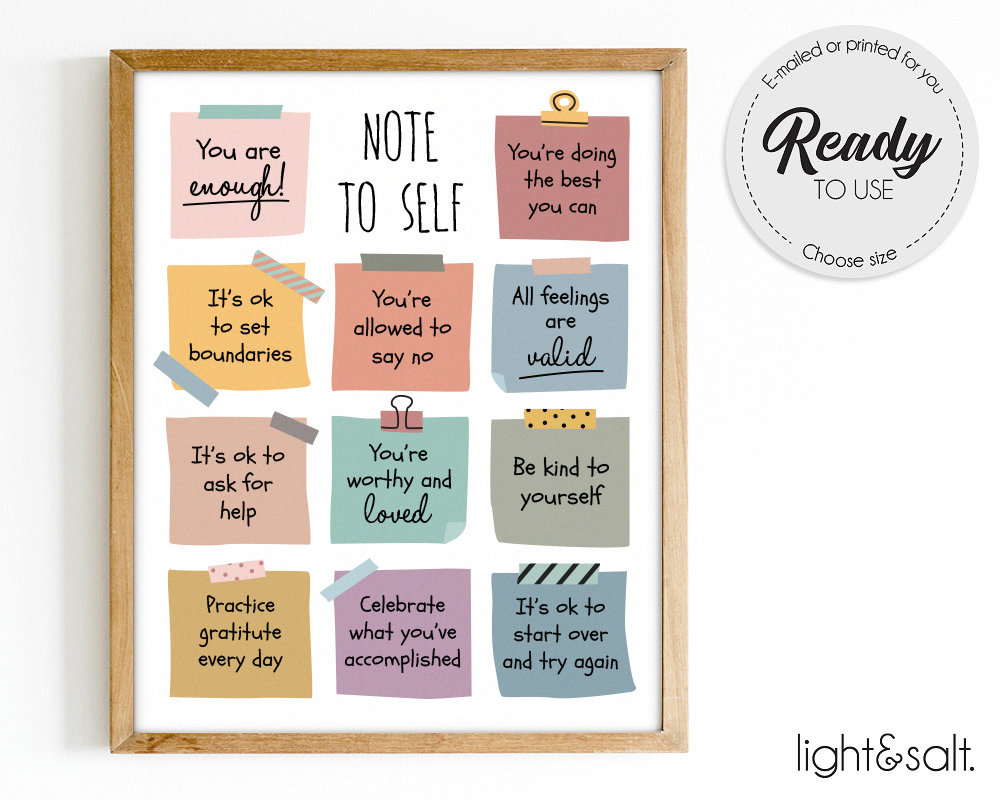 You are
enough!
NOTE
TO SELF
You're doing
the best
you can
It's ok
to set
boundaries
You're
allowed to
say no
All feelings
are
valid
It's ok to
ask for
help
You're
worthy and
loved
Be kind to
yourself
Practice
gratitute
every day
Celebrate
what you've
accomplished
It's ok to
start over
and try again
E-mailed or printed for you
Ready
TO USE
Choose size
light&salt.